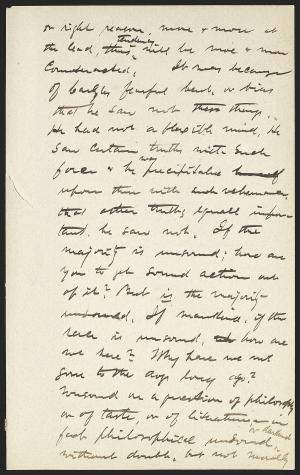 or right reason, more & more at
the lead, this tendency will be more & more
counteracted. It was because
of Carlyle's fearful bent, or bias
that he saw not these things.
He had not a flexible mind. He
saw certain truths with such
force & was he precipitated himself
upon them with such vehemence,
that other truths equally impor-
tant he saw not. If the
majority is unsound, how are
you to get sound action out
of it? But is the majority
unsound. If mankind, if the
race is unsound, how are
we here? Why have we not
gone to the dogs long ago?
Unsound on a question of philosophy
or of taste, or of literature—
in fact philosophical unsound
without doubt, but not morally